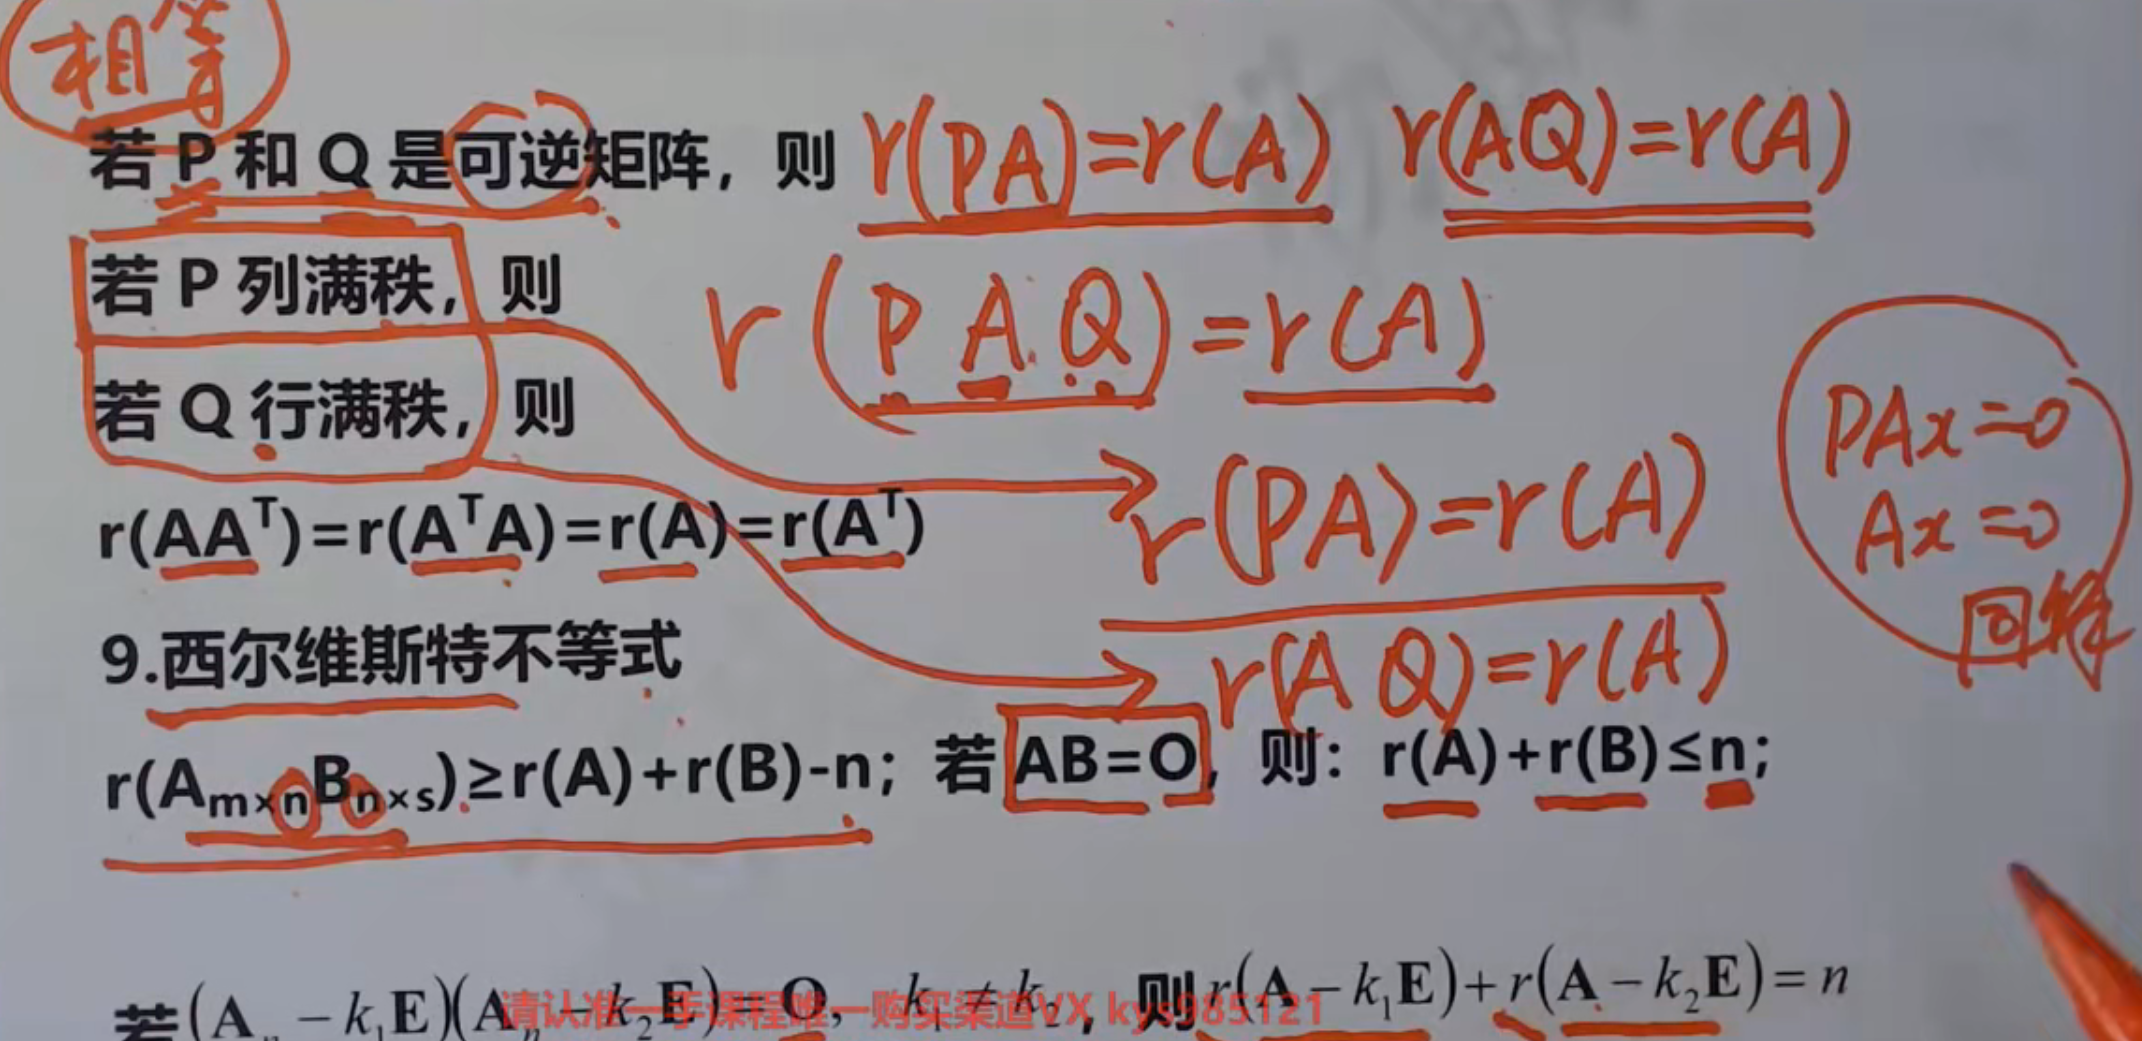 相等
若 P 和 Q 是可逆矩阵，则 r(PA)=r(A) r(AQ)=r(A)
若 P 列满秩，则
r(PAQ)=r(A)
若 Q 行满秩，则
PAx=0
Ax=0
r(PA)=r(A)
r(AAᵀ)=r(AᵀA)=r(A)=r(Aᵀ)
同解
9.西尔维斯特不等式
r(AQ)=r(A)
r(Aₘ×ₙBₙ×ₛ)≥r(A)+r(B)-n；若 AB=O，则：r(A)+r(B)≤n；
若(Aₙ－k₁E)(Aₙ－k₂E)=O，k₁≠k₂，则r(A－k₁E)+r(A－k₂E)=n
请认准一手课程唯一购买渠道VX kys985121